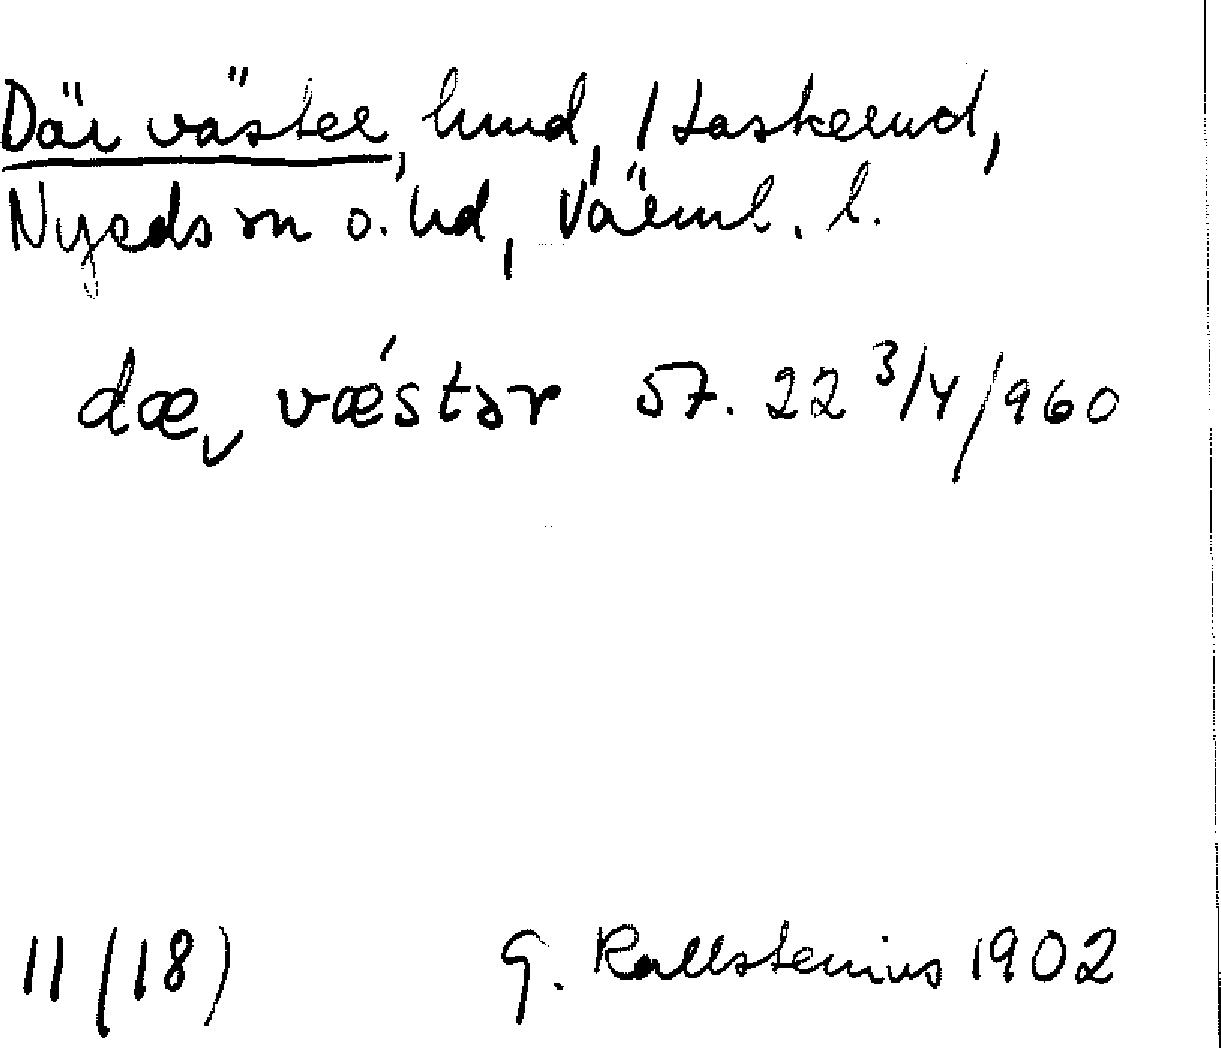 Där väster, hmd, / Laskerud,
Nyeds sn o. hd, Värml. l.
dæ˯ vǽstər 57. 22 3/4/960
11 (18) G. Kallstenius 1902